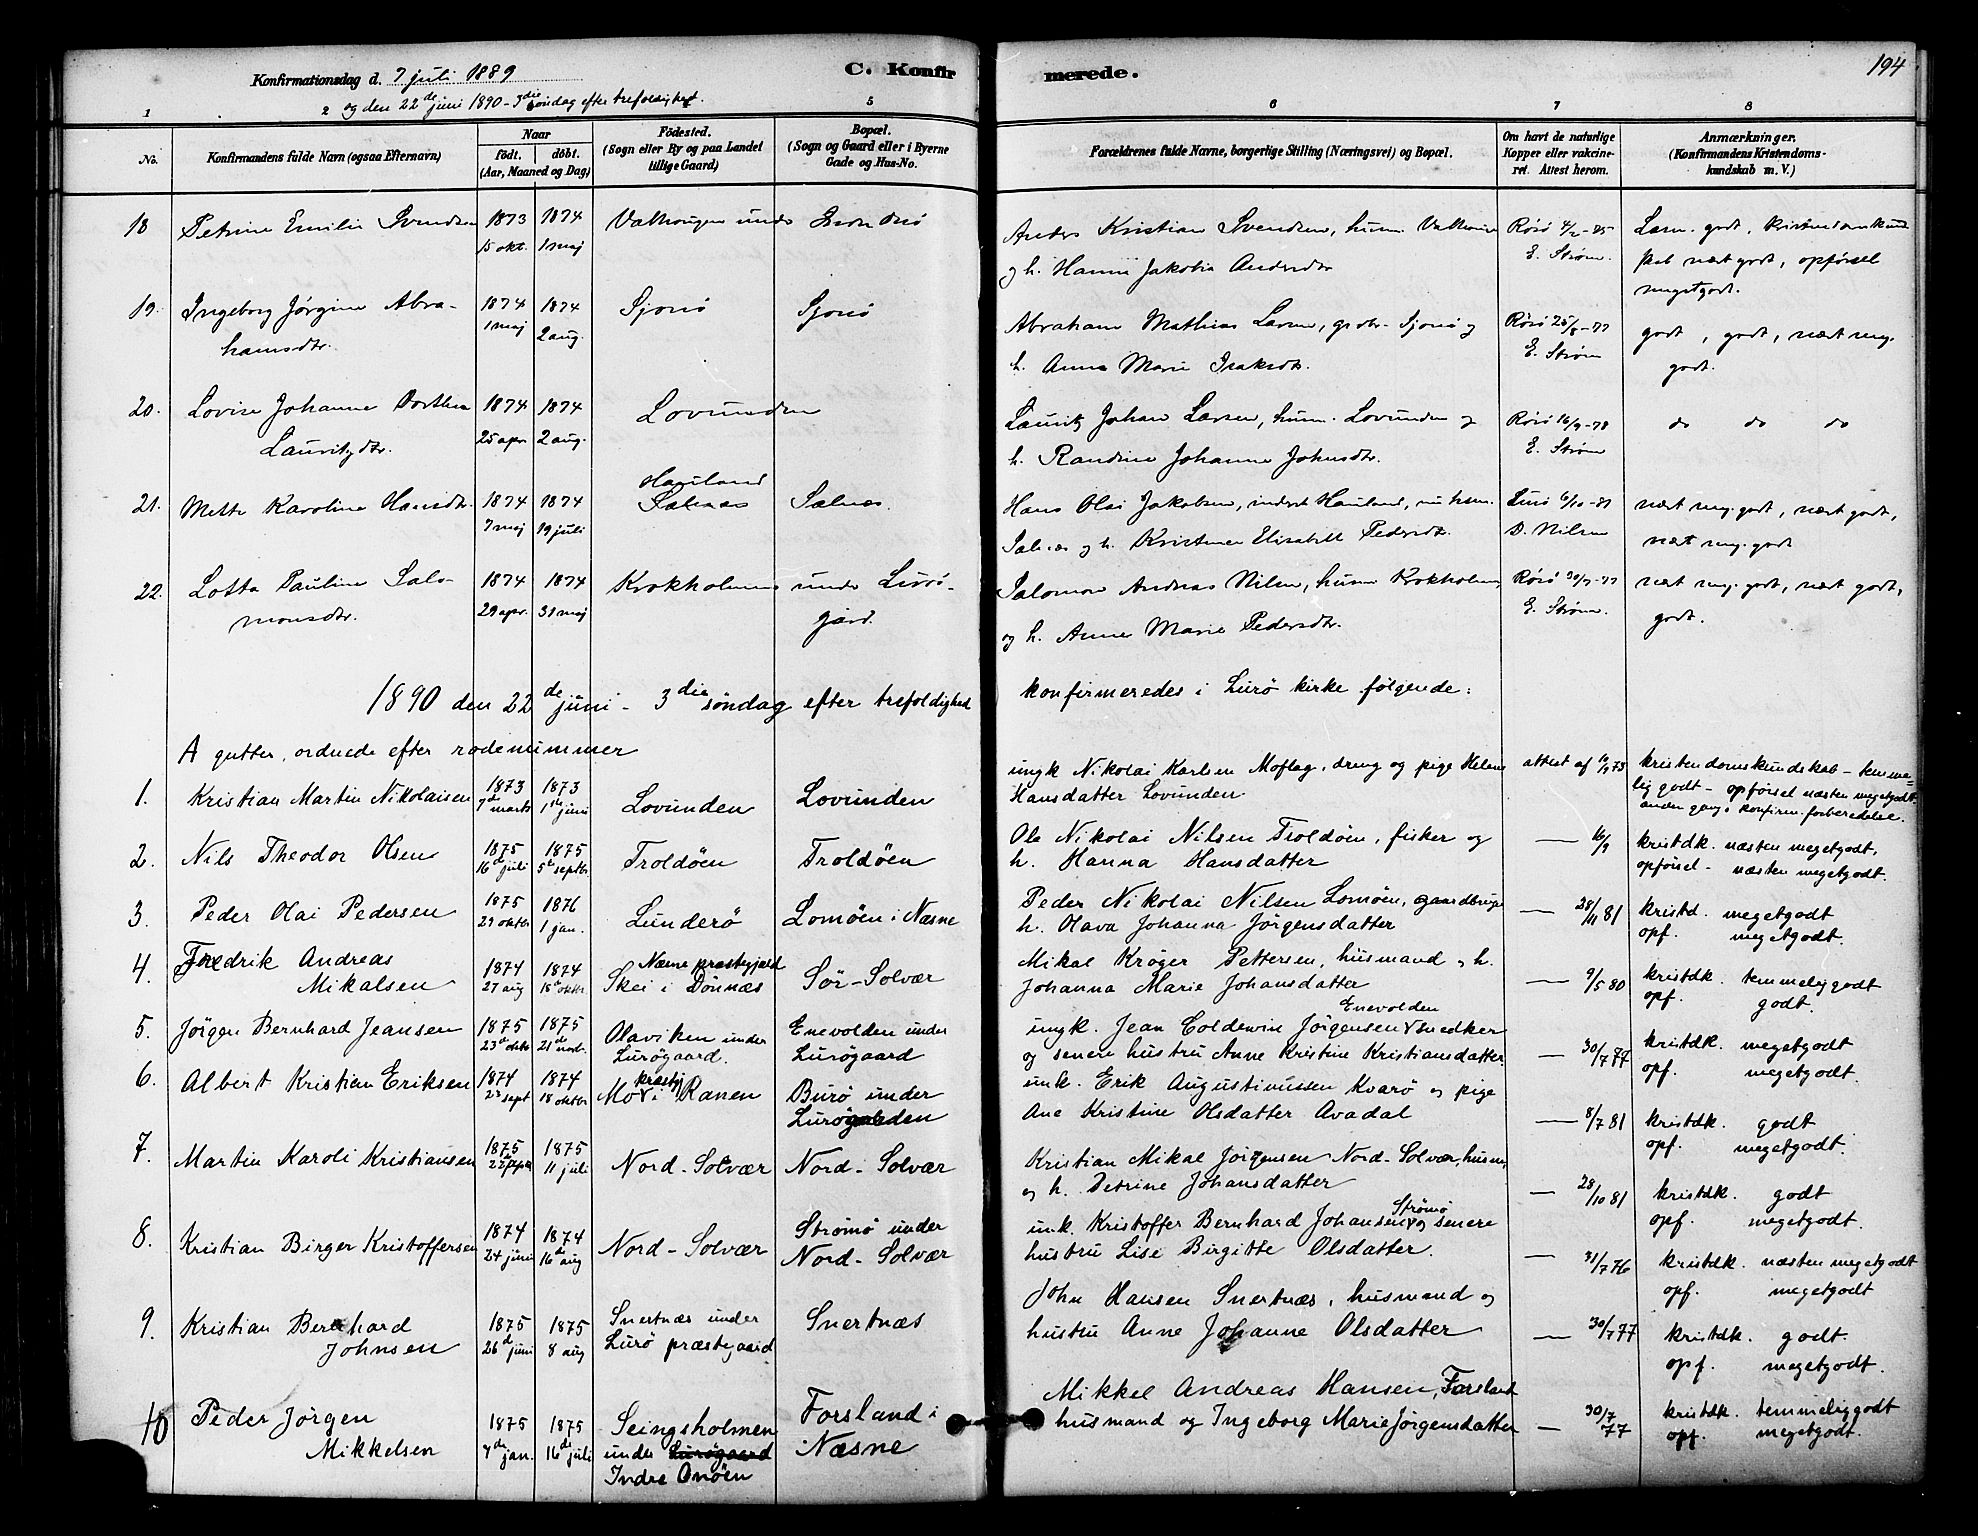 194
Konfirmationsdag d. 7 juli 1889
C. Konfirmerede.
og den 22de juni 1890 - 3die søndag efter trefoldighet.
1 2 5 6 7 8
No.
Konfirmandens fulde Navn (ogsaa Efternavn)
Naar
født. døbt.
(Aar, Maaned og Dag)
Födested.
(Sogn eller By og paa Landet
tillige Gaard)
Bopæl.
(Sogn og Gaard eller i Byerne
Gade og Hus-No.
Forældrenes fulde Navne, borgerlige Stilling (Næringsvei) og Bopæl.
Om havt de naturlige
Kopper eller vakcine-
ret. Attest herom.
Anmærkninger.
(Konfirmandens Kristendoms-
kundskab m. V.)
18 Petrine Emilie Svendsen 1873 15 okt. 1874 1 maj Valhaugen under
Anders Kristian Svendsen, husm. Valhaugen
og h. Hanna Jakobia Andersdtr
E. Strøm.
Læsn. godt, kristendomskund
skab nært godt, opførsel
megetgodt.
19. Ingeborg Jørgine Abra-
hamsdtr. 1874 1 maj 1874 2 aug. Sjonø Sjonø
Abraham Mathias Larsen, grdbr. Sjonø og
h. Anna Marie Isaksdtr.
Rösö 25/8-77
E. Strøm
godt, godt, nært meg.
godt.
20. Lovise Johanne Dorthea
Lauritzdtr. 1874 25 apr. 1874 2 aug. Lovunden
Lauritz Johan Larsen, husm. Lovunden og
h. Randine Johanna Johnsdtr.
Rösö 16/9-78
E. Strøm
do do do
21. Mette Karoline Hansdtr. 1874 7 maj 1874 19 juli Hauland Selnæs Selnæs.
Hans Olai Jakobsen, inderst Hauland, nu husm.
Selnæs og h. Kristine Elisabeth Pedersdtr.
Lurö 6/10-81
D. Nilsen
nært meg. godt, nært godt,
nært meg. godt
22. Lotta Pauline Salo-
monsdtr. 1874 29 apr. 1874 31 maj Krokholmen under Lurö-
gård.
Salomon Andreas Nilsen, husm. Krokholmen
og h. Anne Marie Pedersdtr.
E. Strøm.
nært meg. godt, nært godt,
godt.
1890 den 22de juni - 3die søndag efter trefoldighed konfirmeredes i Lurö kirke følgende:
A gutter, ordnede efter rodenummer
1. Kristian Martin Nikolaisen 1873 7de marts 1873 1ste juni Lovunden Lovunden
ungk Nikolai Karlsen Moflag, dreng og pige Helene
Hansdatter Lovunden.
kristendomskundskab - temme-
lig godt - opførsel næsten megetgodt.
anden gang i konfirm. forberedelse.
2. Nils Theodor Olsen 1875 16de juli 1875 5te septbr Troldöen Troldöen
Ole Nikolai Nilsen Troldöen, fisker og
h. Hanna Hansdatter
— 16/9
kristdk. næsten megetgodt,
opførsel - næsten megetgodt.
3. Peder Olai Pedersen 1875 29 oktbr 1876 1 jan. Lunderö Lomöen i Næsne
Peder Nikolai Nilsen Lomöen, gaardbruger
h. Olava Johanna Jörgensdatter
— 28/11 81
kristd. megetgodt
opf. megetgodt.
4. Fredrik Andreas
Mikalsen 1874 27 aug 1874 18de oktbr. Næsne præstegjæld
Skei i Dönnæs Sör-Solvær
Mikal Kröger Pettersen, husmand og h.
Johanna Marie Johansdatter
— 9/5 80
kristdk. temmeliggodt
opf. godt.
5. Jörgen Bernhard Jeansen 1875 23de oktbr 1875 21de novb. Olaviken under
Lurögaard. Enevolden under
Lurögaard
Enevolden
ungk. Jean Coldewin Jörgensen snedker
og senere hustru Anne Kristine Kristiansdatter
— 30/7 77
kristdk. megetgodt
opf. megetgodt.
6. Albert Kristian Eriksen 1874 2de sept 1874 18 oktbr Mo præstgj i Ranen Burö under
Lurögaarden
unk. Erik Augustinussen Kvarö og pige
Ane Kristine Olsdatter Avadal
— 8/7 81
kristdk. godt
opf. megetgodt.
7. Martin Karoli Kristiansen 1875 22de apr 1875 11 juli Nord-Solvær Nord-Solvær
Kristian Mikal Jörgensen Nord-Solvær, husm,
og h. Petrine Johansdatter
— 28/10 81
kristdk. godt
opf. megetgodt.
8. Kristian Birger Kristoffersen 1874 24 juni 1874 16de aug Nord-Solvær Strömö under
Nord-Solvær
Strömö
unk. Kristoffer Bernhard Johansen og senere
hustru Lise Birgitte Olsdatter.
— 31/7 76
kristdk. næsten megetgodt
opf. megetgodt
9. Kristian Bernhard
Johnsen 1875 26de juni 1875 8 aug Snertnæs under
Lurö præstegaard Snertnæs
John Hansen Snertnæs, husmand og
hustru Anne Johanne Olsdatter
— 30/7 77
kristdk. godt.
opf. megetgodt.
10 Peder Jörgen
Mikkelsen 1875 7de jan. 1875 16de juli Seingsholmen
under Lurögaard
Indre Onöen Forsland i
Næsne
Mikkel Andreas Hansen, Forsland
husmand og Ingeborg Marie Jörgensdatter
— 30/7 77
kristdk. temmeliggodt
opf. megetgodt.